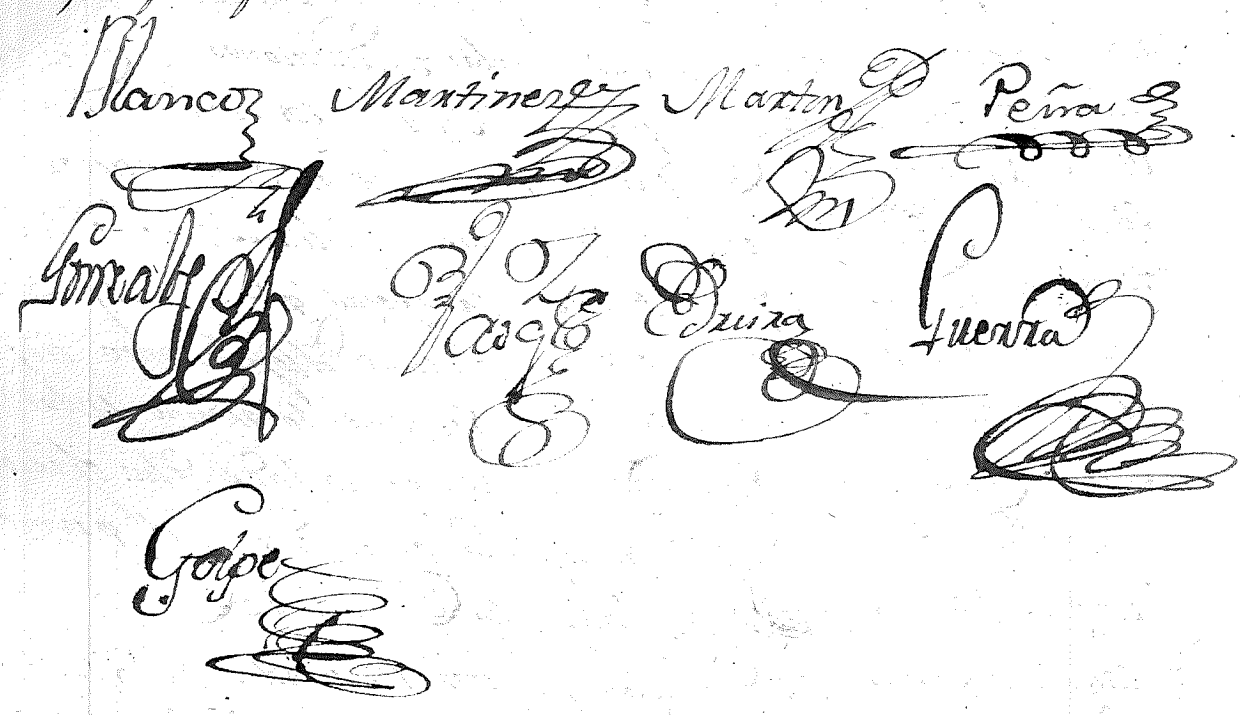 Blanco Martinez Martin Peña
Gonzalez Eruira Guerra
Golpe